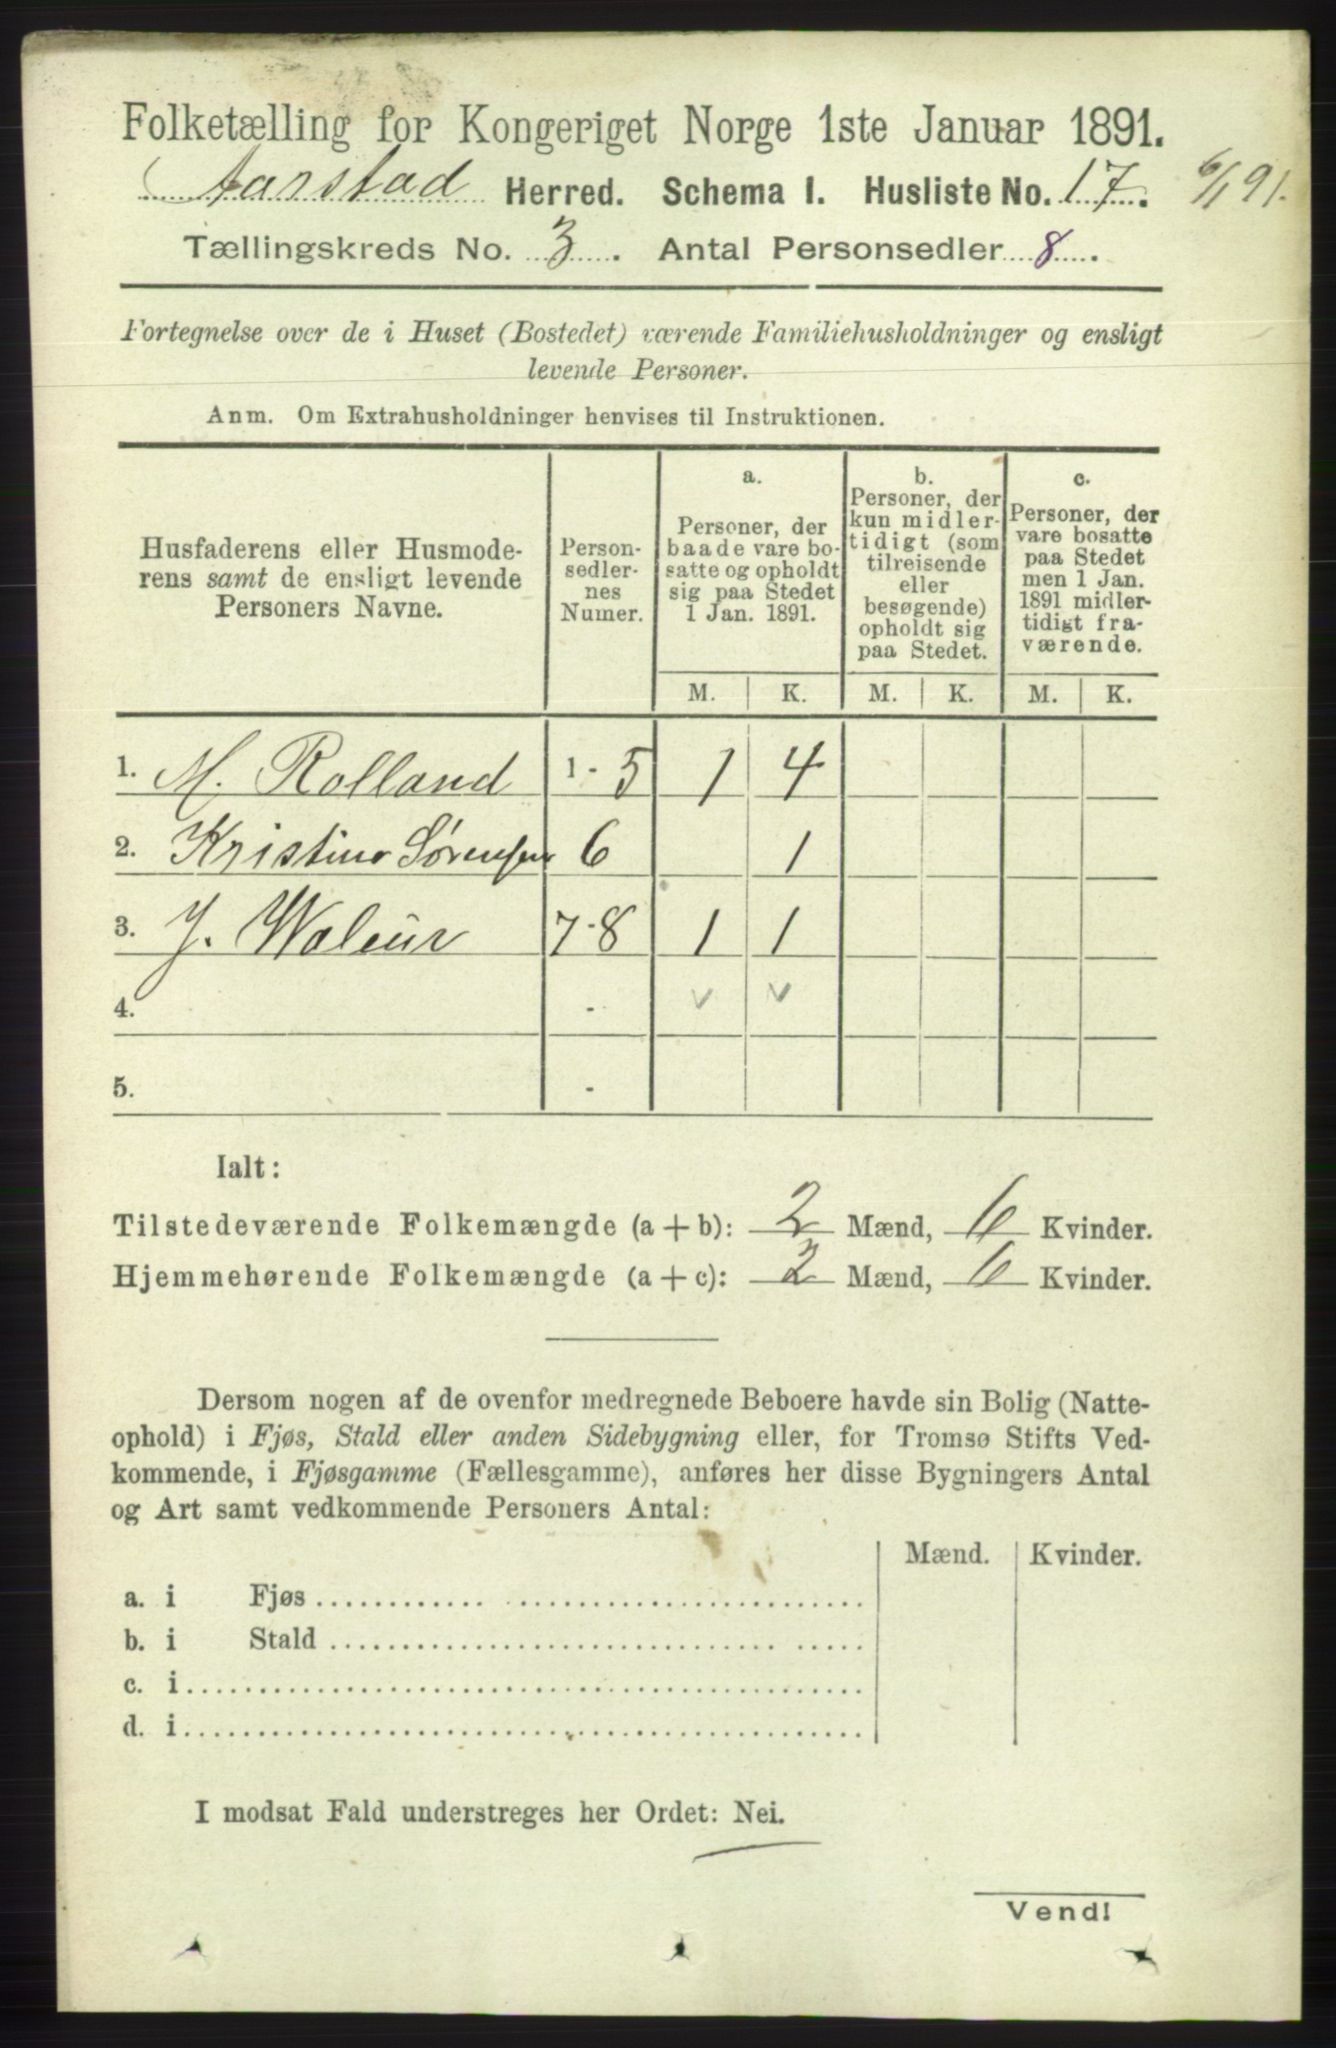 Folketælling for Kongeriget Norge 1ste Januar 1891.
Aarstad Herred. Schema I. Husliste No. 17. 6/1 91.
Tællingskreds No. 3. Antal Personsedler 8.
Fortegnelse over de i Huset (Bostedet) værende Familiehusholdninger og ensligt
levende Personer.
Anm. Om Extrahusholdninger henvises til Instruktionen.
Husfaderens eller Husmode-
rens samt de ensligt levende
Personers Navne.
Person-
sedler-
nes
Numer.
a.
Personer, der
baade vare bo-
satte og opholdt
sig paa Stedet
1 Jan. 1891.
b.
Personer, der
kun midler-
tidigt (som
tilreisende
eller
besøgende)
opholdt sig
paa Stedet.
c.
Personer, der
vare bosatte
paa Stedet
men 1 Jan.
1891 midler-
tidigt fra-
værende.
M. K. M. K. M. K.
1. M. Rolland 1 - 5 1 4
2. Kristine Sørensen 6 1
3. J. 7-8 1 1
4. - v v
5. -
Ialt:
Tilstedeværende Folkemængde (a + b): 2 Mænd, 6 Kvinder.
Hjemmehørende Folkemængde (a + c): 2 Mænd, 6 Kvinder.
Dersom nogen af de ovenfor medregnede Beboere havde sin Bolig (Natte-
ophold) i Fjøs, Stald eller anden Sidebygning eller, for Tromsø Stifts Ved-
kommende, i Fjøsgamme (Fællesgamme), anføres her disse Bygningers Antal
og Art samt vedkommende Personers Antal:
Mænd. Kvinder.
a. i Fjøs
b. i Stald
c. i
d. i
I modsat Fald understreges her Ordet: Nei.
Vend!